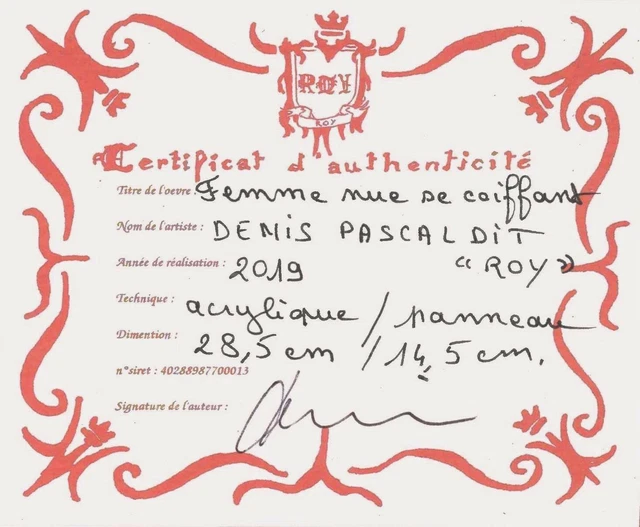 ROY
ROY
Certificat d'authenticité
Titre de l'oevre : Femme nue se coiffant
Nom de l'artiste : DENIS PASCAL DIT
Année de réalisation : 2019 « ROY »
Technique : acrylique / panneau
Dimention : 28,5 cm / 14,5 cm.
n°siret : 40288987700013
Signature de l'auteur :